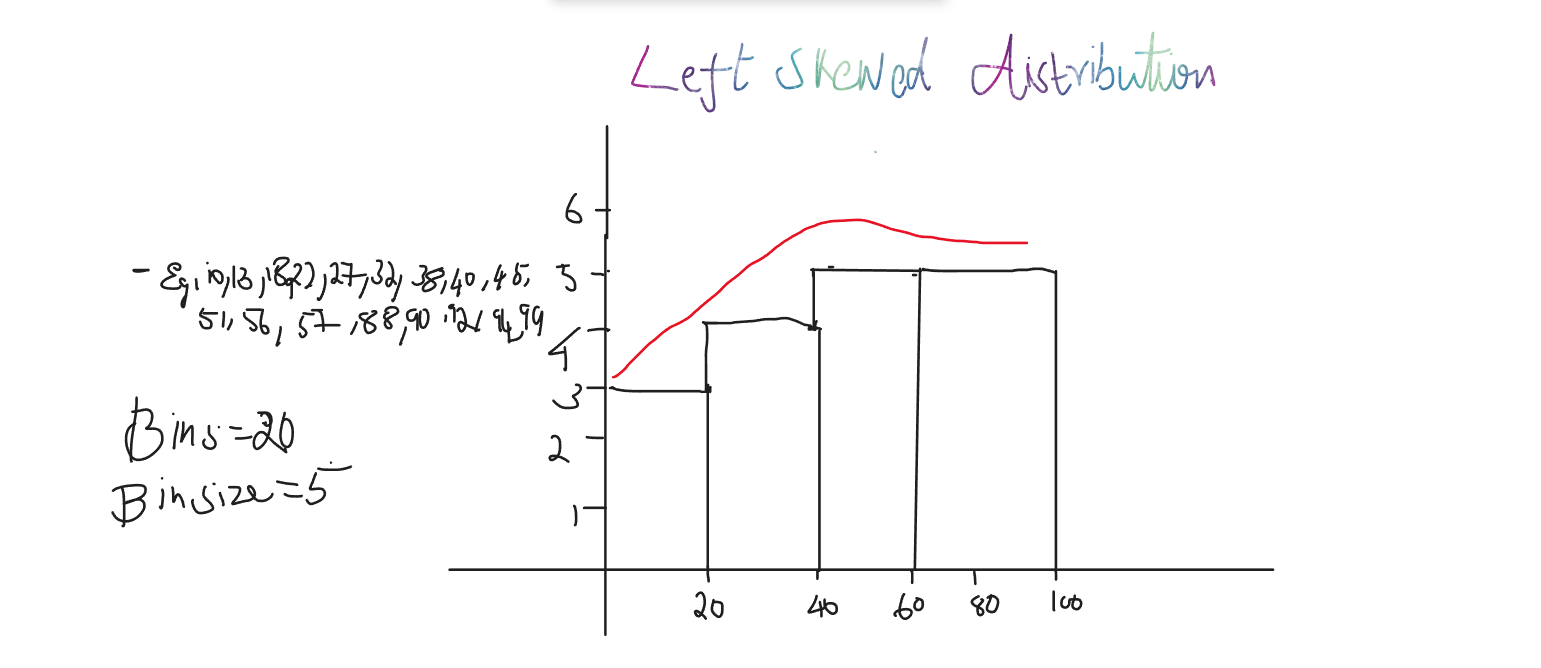 Left Skewed distribution
6
- Eg, 10, 13, 18, 22, 27, 32, 38, 40, 45,
5
51, 56, 57, 88, 90, 92, 94, 99
4
3
Bins = 20
2
Binsize = 5
1
20 40 60 80 100